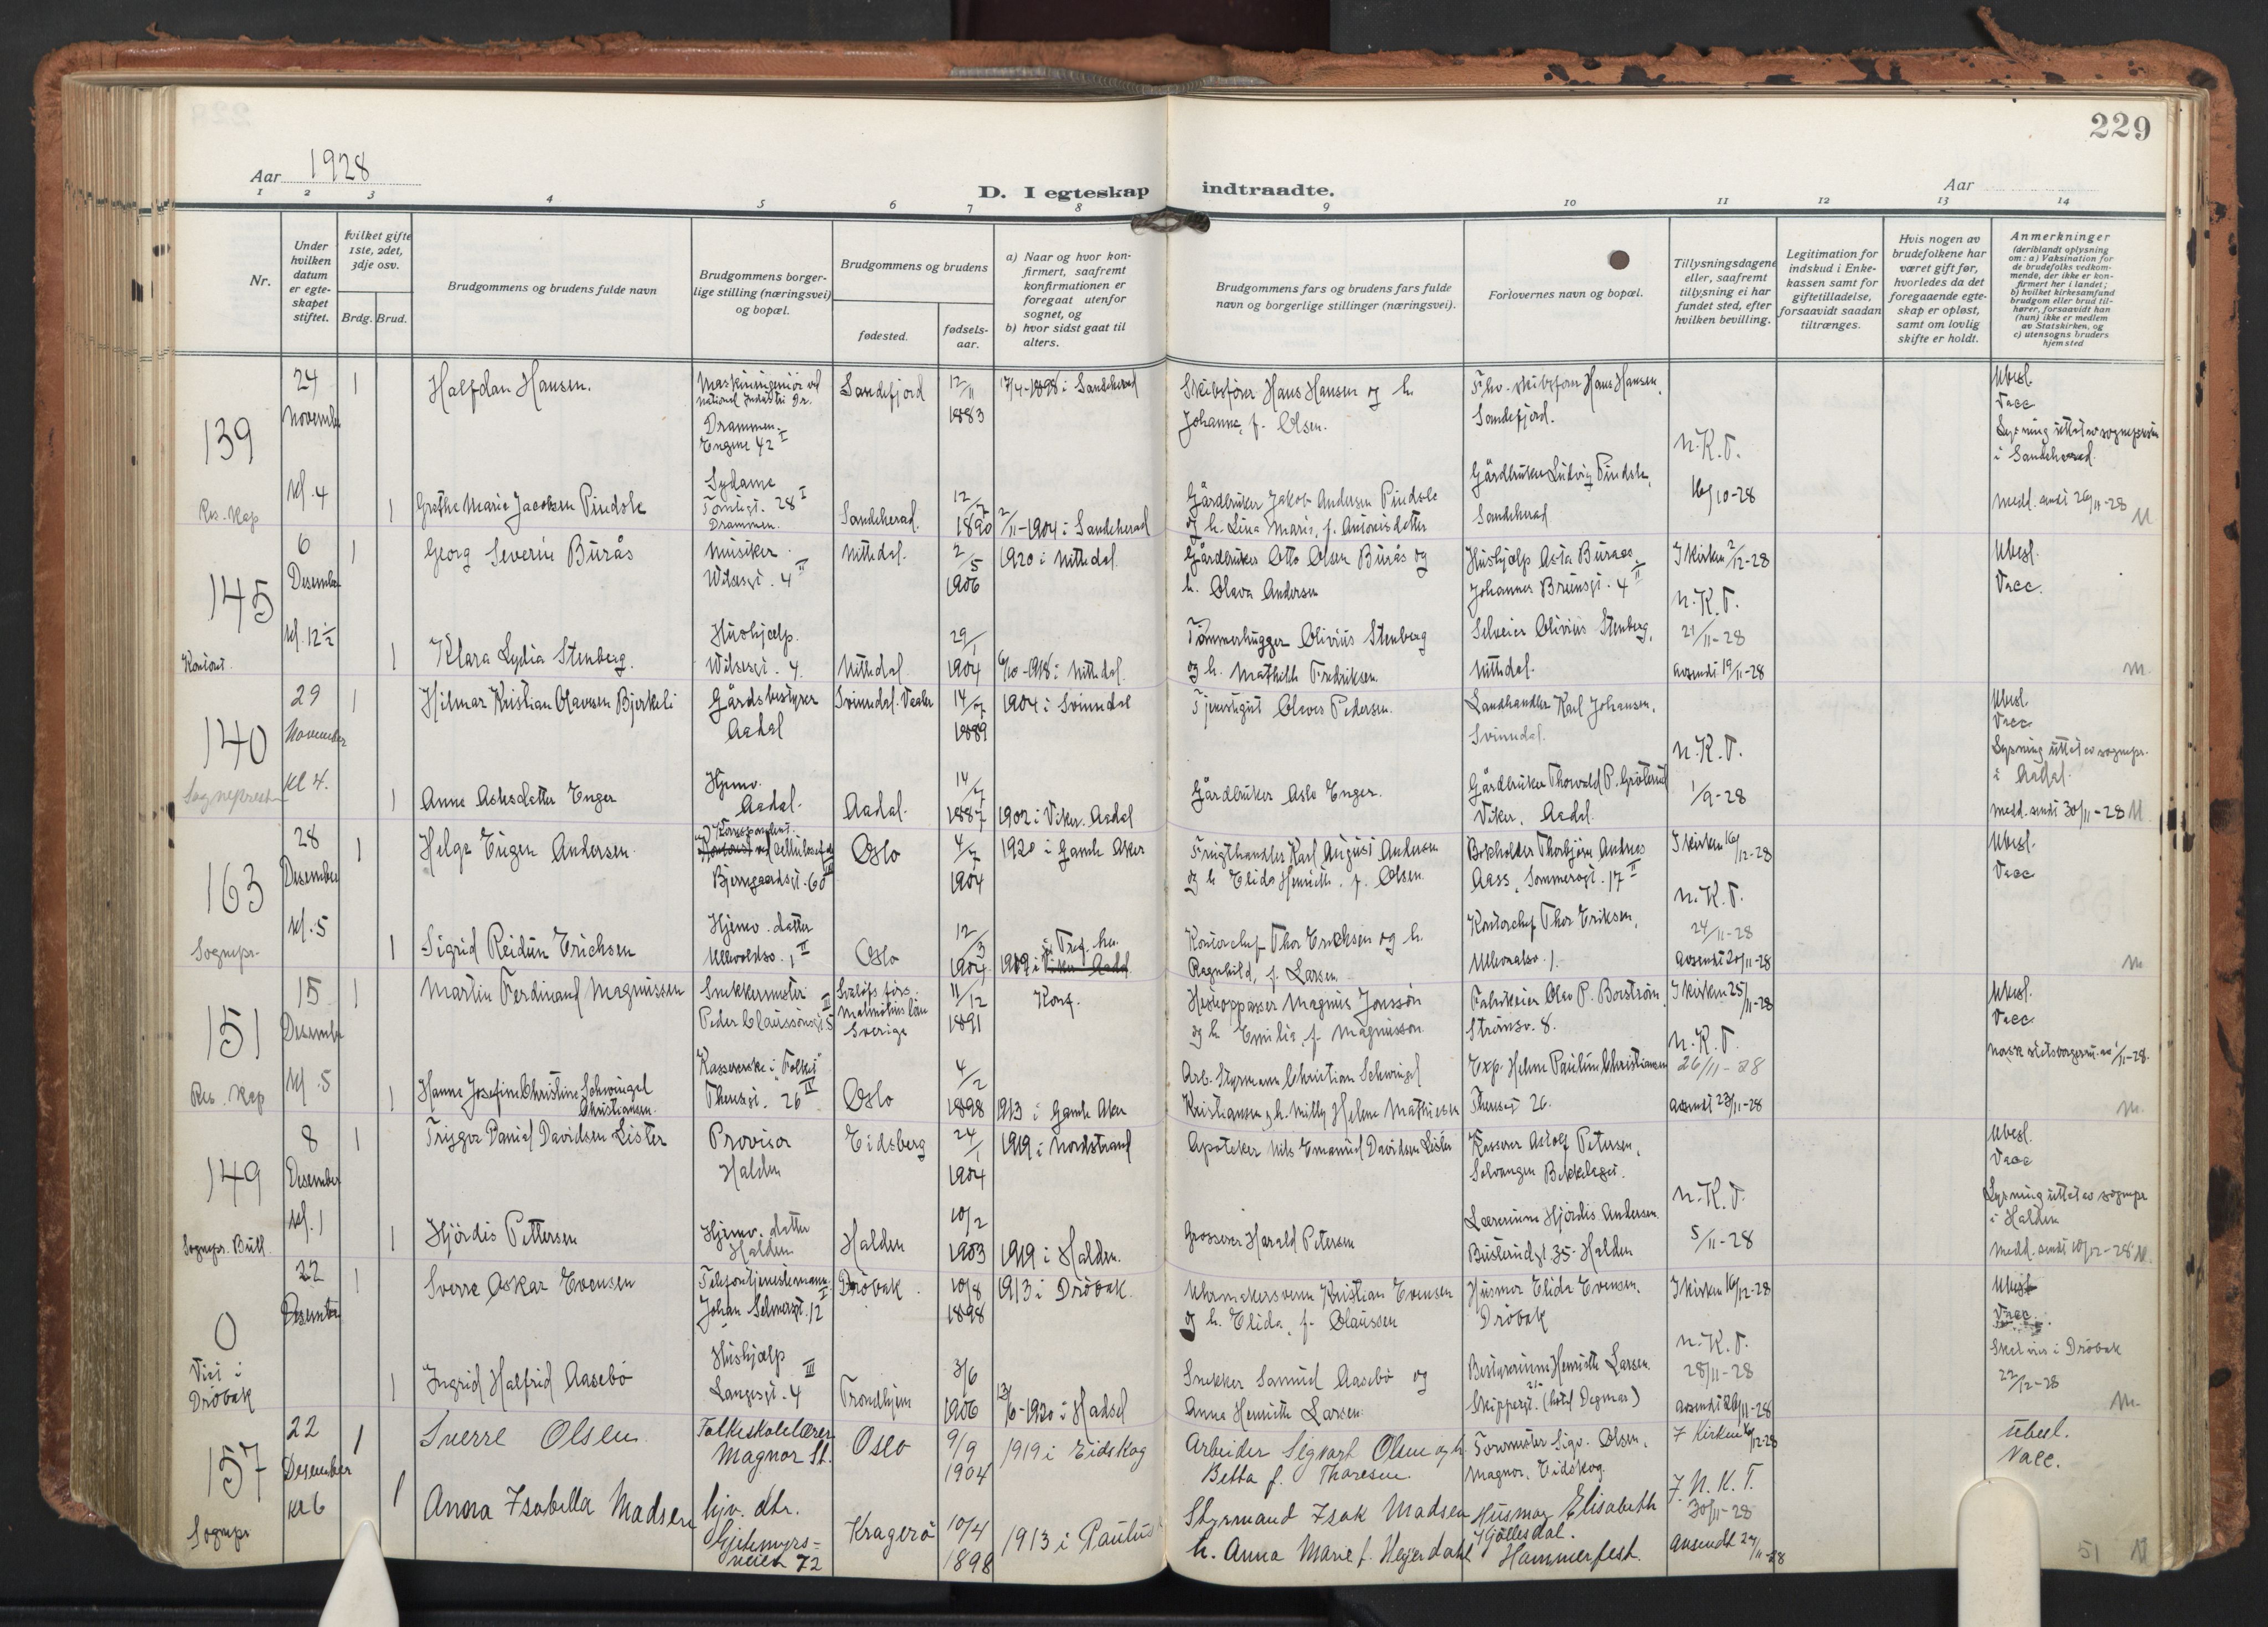 229
Aar 1928
D. I egteskap indtraadte.
Aar
1 2 3 4 5 6 7 8 9 10 11 12 13 14
Nr.
Under hvilken datum er egteskapet stiftet.
hvilket gifte 1ste, 2det, 3dje osv.
Brdg. Brud.
Brudgommens og brudens fulde navn
Brudgommens borgerlige stilling (næringsvei) og bopæl.
Brudgommens og brudens
fødested.
fødselsaar.
a) Naar og hvor konfirmert, saafremt konfirmationen er foregaat utenfor sognet, og
b) hvor sidst gaat til alters.
Brudgommens fars og brudens fars fulde navn og borgerlige stillinger (næringsvei).
Forlovernes navn og bopæl.
Tillysningsdagene eller, saafremt tillysning ei har fundet sted, efter hvilken bevilling.
Legitimation for indskud i Enkekassen samt for giftetilladelse, forsaavidt saadan tiltrænges.
Hvis nogen av brudefolkene har været gift før, hvorledes da det foregaaende egteskap er opløst, samt om lovlig skifte er holdt.
Anmerkninger
(deriblandt oplysning om: a) Vaksination for de brudefolks vedkommende, der ikke er konfirmert her i landet;
b) hvilket kirkesamfund brudgom eller brud tilhører, forsaavidt han (hun) ikke er medlem av Statskirken, og
c) utensogns bruders hjemsted
139
24 November kl. 4
Res. Kap
1 Halfdan Hansen.
Maskiningeniør ved National Industri Dr. Drammen. Engene 42 I
Sandefjord
12/11 1883
17/4-1898 i Sandeherad
Skibsfører Hans Hansen og h. Johanne, f. Olsen.
Fhv. skibsfører Hans Hansen, Sandefjord.
n.K.T. 16/10-28
Ubesl. Vacc
Lysning uttat av sognepresten i Sandeherad.
medd. sendt 26/11-28
1 Grethe Marie Jacobsen Pindsle
Sydame Tomtegt. 28 I Drammen.
Sandeherad.
12/7 1890
2/11-1904 i Sandeherad
Gårdbruker Jakob Andersen Pindsle og h. Lina Marie, f. Antonisdatter
Gårdbruker Ludvig Pindsle, Sandeherad.
145
6 Desember kl. 12½
Kontort.
1 Georg Severin Burås
Musiker. Wilsesgt. 4 II
Nittedal.
2/5 1906
1920 i Nittedal.
Gårdbruker Otto Olsen Burås og h. Olava Andersen
Hushjelp Asta Buraas, Johannes Brunsgt. 4 II
I kirken 2/12-28
n.K.T. 21/11-28
avsendt 19/11-28
Ubesl. Vacc.
1 Klara Lydia Stenberg.
Hushjelp. Wilsesgt. 4.
Nittedal.
29/1 1904
6/10-1918 i Nittedal.
Tømmerhugger Olivius Stenberg og h. Mathilde Fredriksen.
Selveier Olivius Stenberg, Nittedal.
140
29 November kl 4.
Sogneprest
1 Hilmar Kristian Olavsen Bjerkeli
Gårdsbestyrer Aadal
Svinndal. Vaaler
14/7 1889
1904 i Svinndal
Olaves Pedersen.
Landhandler Karl Johansen, Svinndal.
n.K.T. 1/9-28
Ubesl. Vacc
Lysning uttat av sognepr. i Aadal.
medd. sendt 30/11-28
1 Anne Aslesdatter Enger
Hjemv. Aadal.
Aadal.
14/7 1887
1902 i Viker. Aadal
Gårdbruker Asle Enger.
Gårdbruker Thorvald P. Grøterud Viker, Aadal.
163
28 Desember kl. 5
Sognepr.
1 Helge Eugen Andersen
Korrespondent Bjerregaardsgt. 60
Oslo
4/7 1904
1920 i Gamle Aker
Frugthandler Karl August Andersen og h Elida Henriette, f. Olsen.
Bokholder Thorbjørn Andreas Aass, Sommerogt. 17 II
I kirken 16/12-28
n.K.T. 24/11-28
avsendt 20/11-28
Ubesl. Vacc
1 Sigrid Reidun Erichsen
Hjemv. datter Ullevoldsv. 1 II
Oslo
12/3 1904
1919 i Tref. hen.
Kontorchef Thor Erichsen og h. Ragnhild, f. Larsen
Kontorchef Thor Eriksen, Ullevoldsv. 1.
151
15 Desember kl. 5
Res. Kap
1 Martin Ferdinand Magnussen
Snekkermester Peder Claussønsgt. 5 III
Svalöfs förs. Malmöhus län Sverige
11/12 1891
Konf.
Hesteoppasser Magnus Jonssøn og h Emilie f. Magnusson
Fabrikeier Olav P. Borstrøm, Strømsv. 8.
I kirken 25/11-28
n.K.T. 26/11-28
avsendt 23/11-28
Ubesl. Vacc
Norsk statsborger
1 Hanna Josefine Christine Schwingel Christiansen.
Kassererske i "Folket" Theresegt. 26 IV
Oslo
4/2 1898
1913 i Gamle Aker
Arb. Styrmann Christian Schwingel Kristiansen og h. Milly Helene Mathiesen
Exp. Helene Pauline Christiansen Theresegt 26.
149
8 Desember kl. 1
Sognepr. Bull
1 Trygve Daniel Davidsen Lister
Provisor Halden
Eidsberg
24/1 1904
1919 i Nordstrand
Apoteker Nils Emanuel Davidsen Lister
Kasserer Astolf Petersen, Solvangen Bekkelaget.
n.K.T. 5/11-28
Ubesl. Vacc
Lysning uttat av sognepr i Halden
medd. sendt 10/12-28
1 Hjördis Pettersen
Hjemv. datter Halden
Halden
10/2 1903
1919 i Halden.
Grosserer Harald Petersen
Lærerinne Hjördis Andersen. 35 Halden
0
22 Desember
Viet i Dröbak
1 Sverre Oskar Evensen
Telefontjenestemann Johan Schwarzgt. 12 I
Dröbak.
10/8 1898
1913 i Dröbak.
Uhrmakersvenn Kristian Evensen og h. Elida, f. Olaussen
Husmor Elida Evensen, Dröbak
I kirken 16/12-28
n.K.T. 28/11-28
avsendt 26/11-28
Ubesl Vacc.
Skal vies i Dröbak 22/12-28
1 Ingrid Halfrid Aasebö
Hushjelp Langesgt. 4 III
Trondhjem
3/6 1906
13/6-1920 i Hadsel
Snekker Samuel Aasebö og Anna Henriette Larsen.
Bestyrerinne Henriette Larsen Skippergt. (hotel Dagmar)
157
22 Desember kl 6
Sognepr
1 Sverre Olsen
Folkeskolelærer Magnor St.
Oslo
9/9 1904
1919 i Eidskog
Arbeider Sigvart Olsen og h. Betta f. Thoresen.
Formester Sigv. Olsen, Magnor, Eidskog.
I Kirken 16/12-28
I N.K.T. 30/11-28
avsendt 27/11-28
ubesl. Vacc.
1 Anna Isabella Madsen
hjv. dtr. Gjetemyrsveien 72
Kragerö
10/4 1898
1913 i Paulus
Styrmand Isak Madsen h. Anna Marie f. Heyerdahl
Husmor Elisabeth Gjöllesdal. Hammerfest.
51